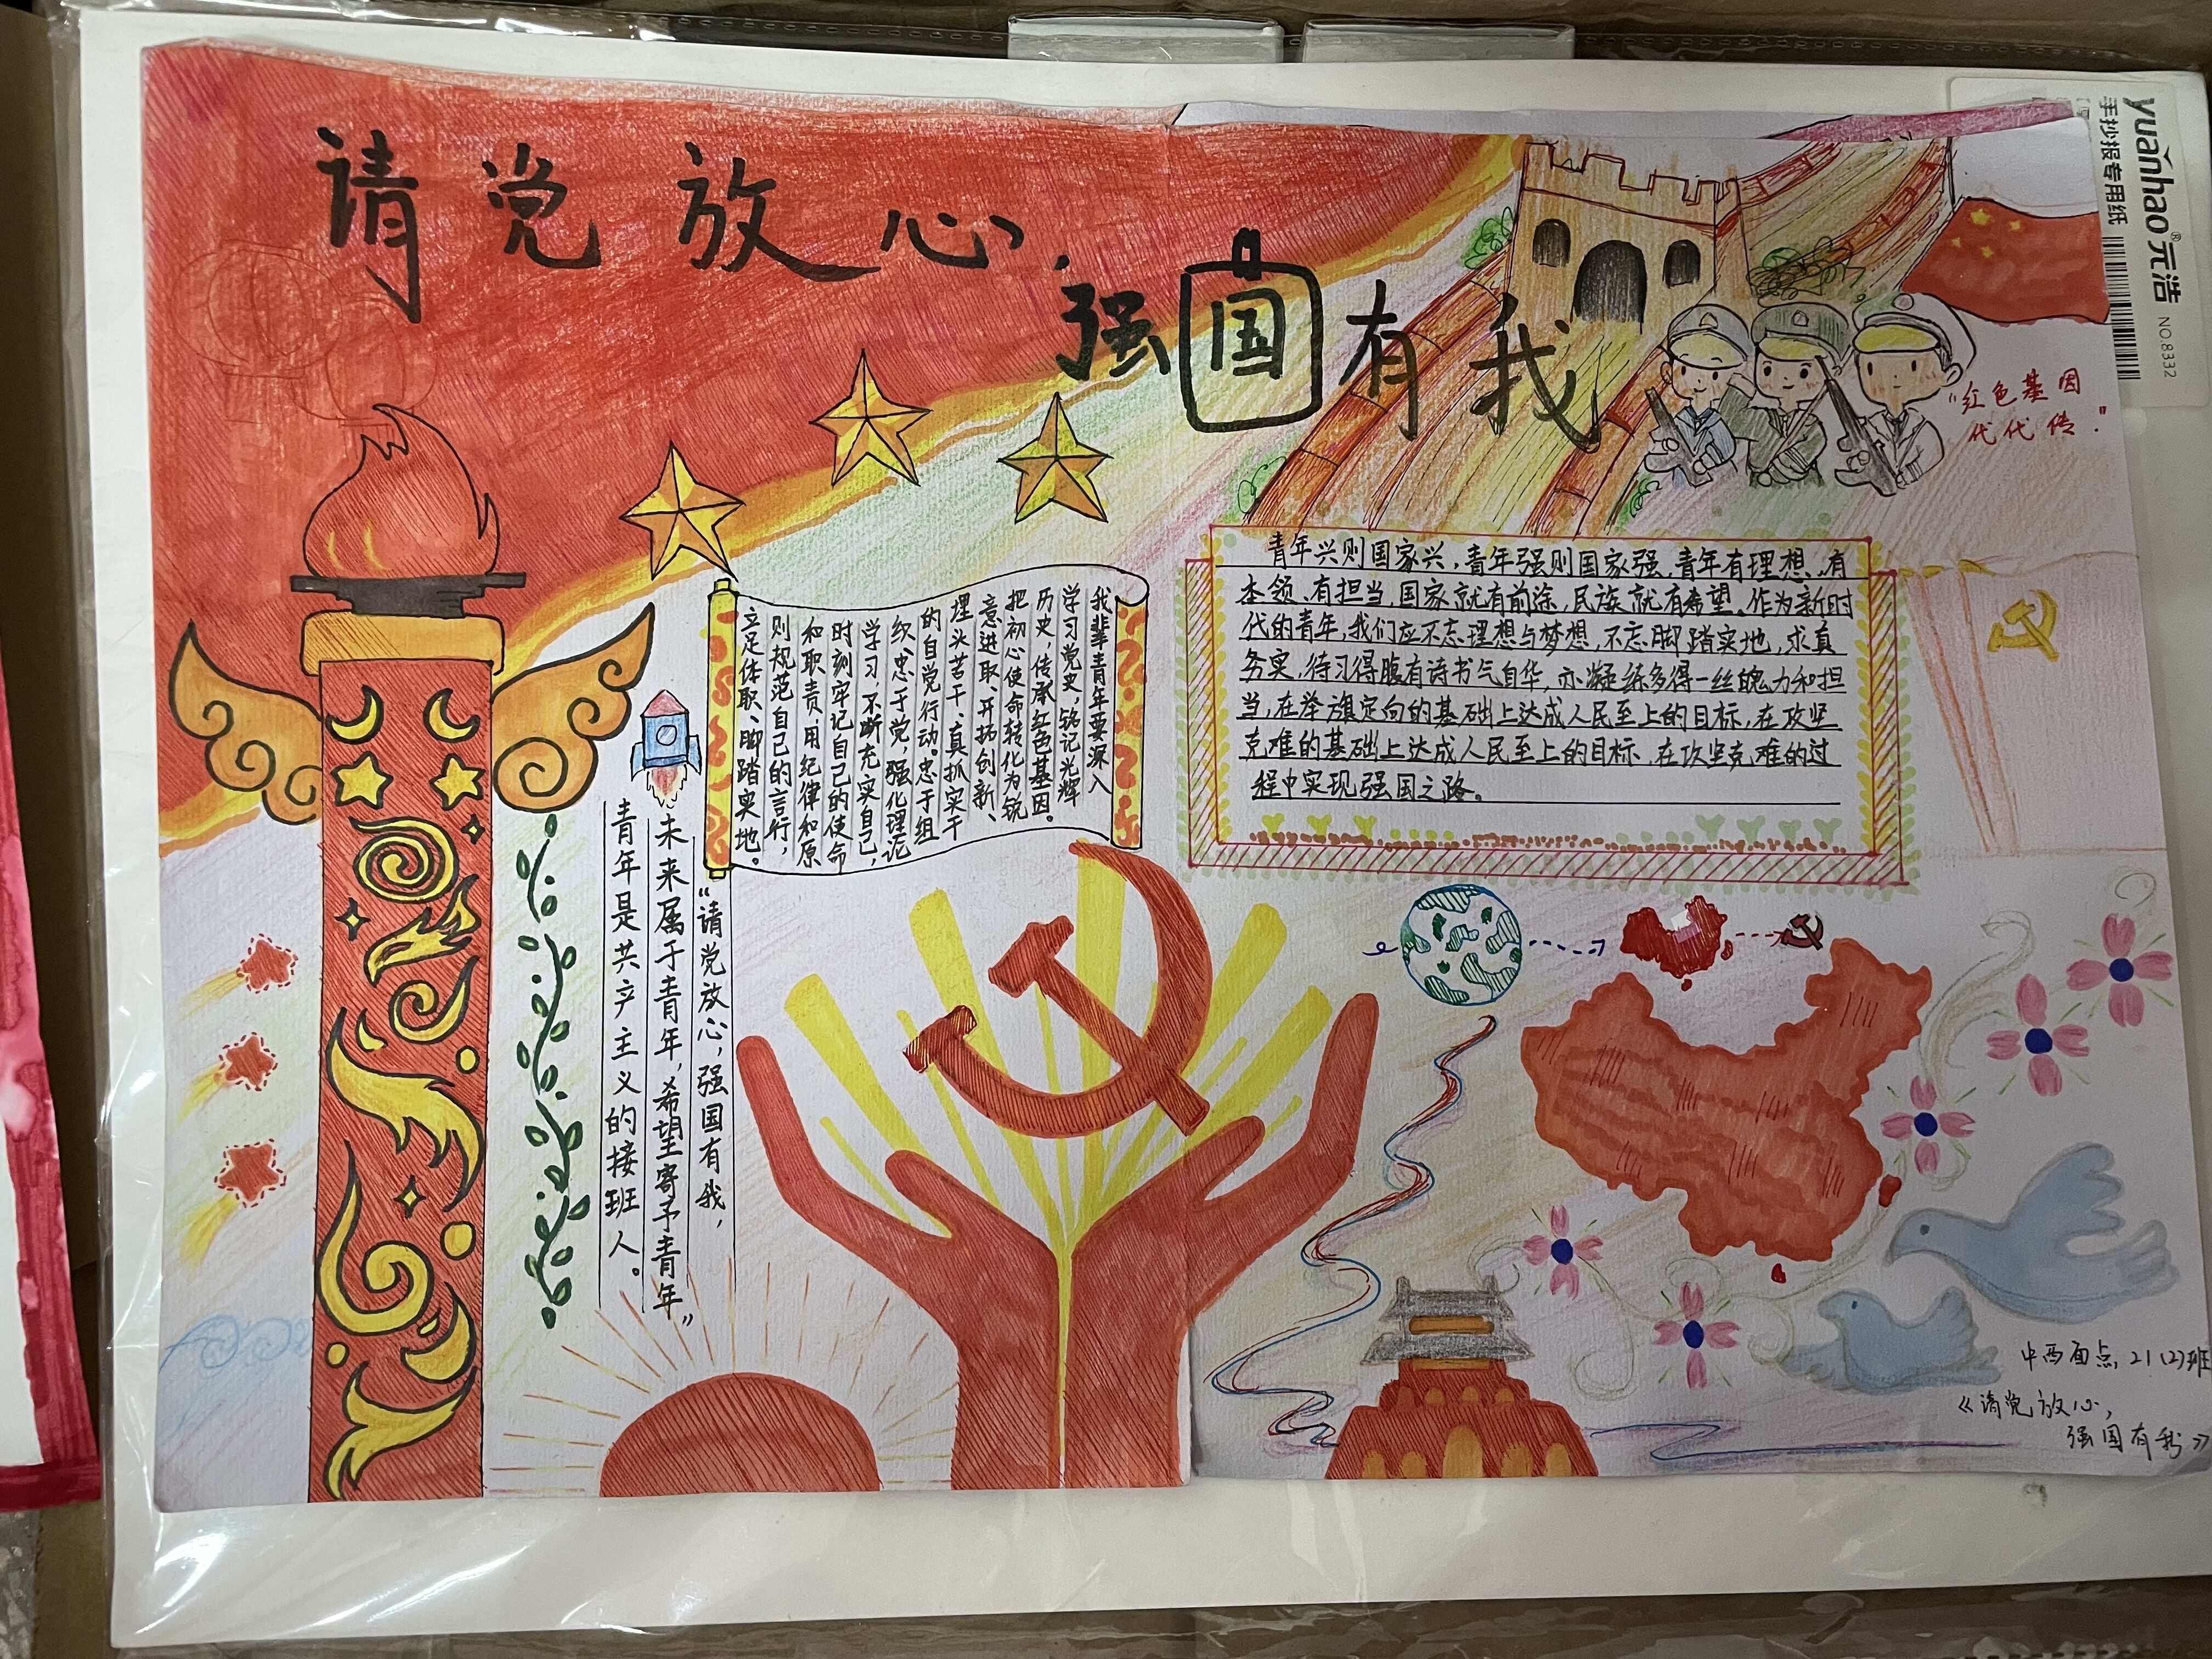 请党放心，
强国有我
yuanhao®元浩
手抄报专用纸
NO.8332
"红色基因
代代传."
我辈青年要深入
学习党史，铭记光辉
历史，传承红色基因。
把初心使命转化为锐
意进取、开拓创新、
埋头苦干、真抓实干
的自觉行动。忠于组
织、忠于党，强化理论
学习，不断充实自己，
时刻牢记自己的使命
和职责，用纪律和原
则规范自己的言行，
立足体职、脚踏实地。
青年兴则国家兴，青年强则国家强，青年有理想、有
本领、有担当，国家就有前途，民族就有希望。作为新时
代的青年，我们应不忘理想与梦想，不忘脚踏实地，求真
务实，待习得腹有诗书气自华，亦凝练多得一丝魄力和担
当，在举旗定向的基础上达成人民至上的目标，在攻坚
克难的基础上达成人民至上的目标，在攻坚克难的过
程中实现强国之路。
"请党放心，强国有我，
未来属于青年，希望寄予青年"
青年是共产主义的接班人。
中西面点，21(2)班
《请党放心，
强国有我》